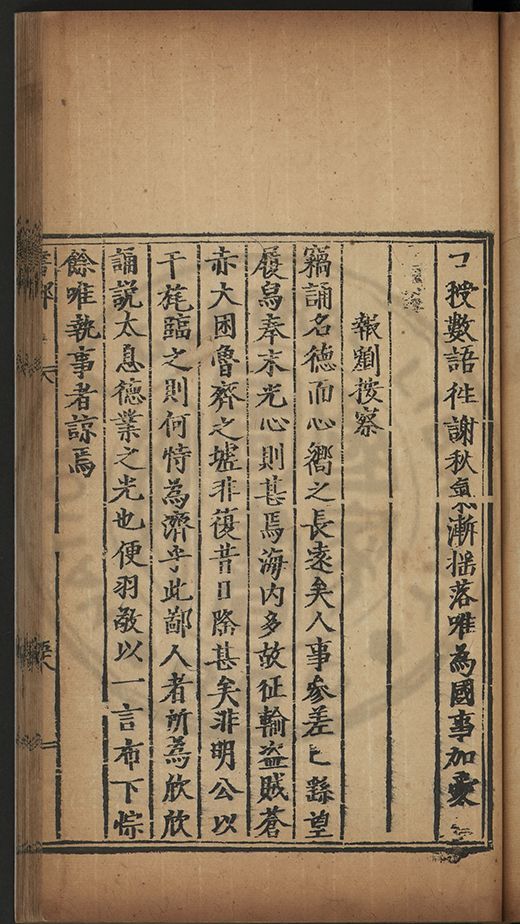 口授數語徃謝秋氣漸揺落唯為國事加愛
報劉按察
竊誦名德而心嚮之長遠矣人事參差亡繇望
履舄奉末光心則甚焉海內多故征輸盗賊蒼
赤大困魯齊之墟非復昔日隆甚矣非明公以
干旄臨之則何恃為濟乎此鄙人者所為欣欣
誦説太息德業之光也便羽敬以一言布下悰
餘唯執事者諒焉